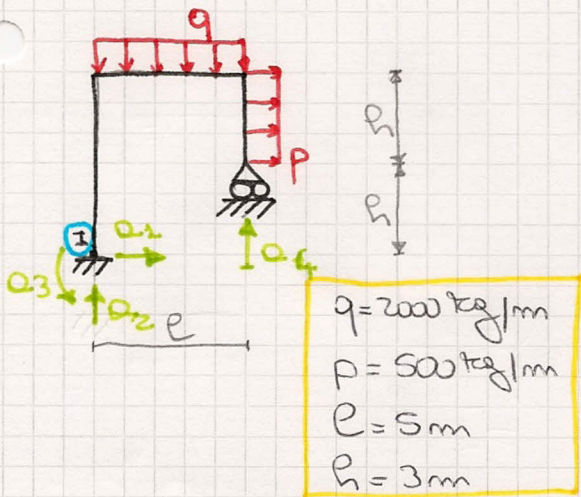 q
p
h
h
I
a1
a3
a2
a4
l
q = 2000 kg/m
p = 500 kg/m
l = 5 m
h = 3 m